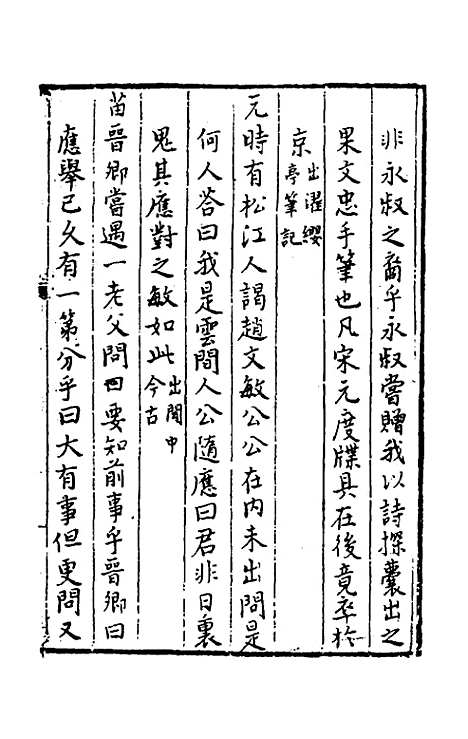 非永叔之裔乎永叔嘗贈我以詩探囊出之
果文忠手筆也凡宋元度牒具在後竟卒於
京出濯纓亭筆記
元時有松江人謁趙文敏公公在内未出問是
何人荅曰我是雲間人公隨應曰君非日裏
鬼其應對之敏如此出閒中今古
苗晉卿嘗遇一老父問曰要知前事乎晉卿曰
應舉已久有一第分乎曰大有事但更問又